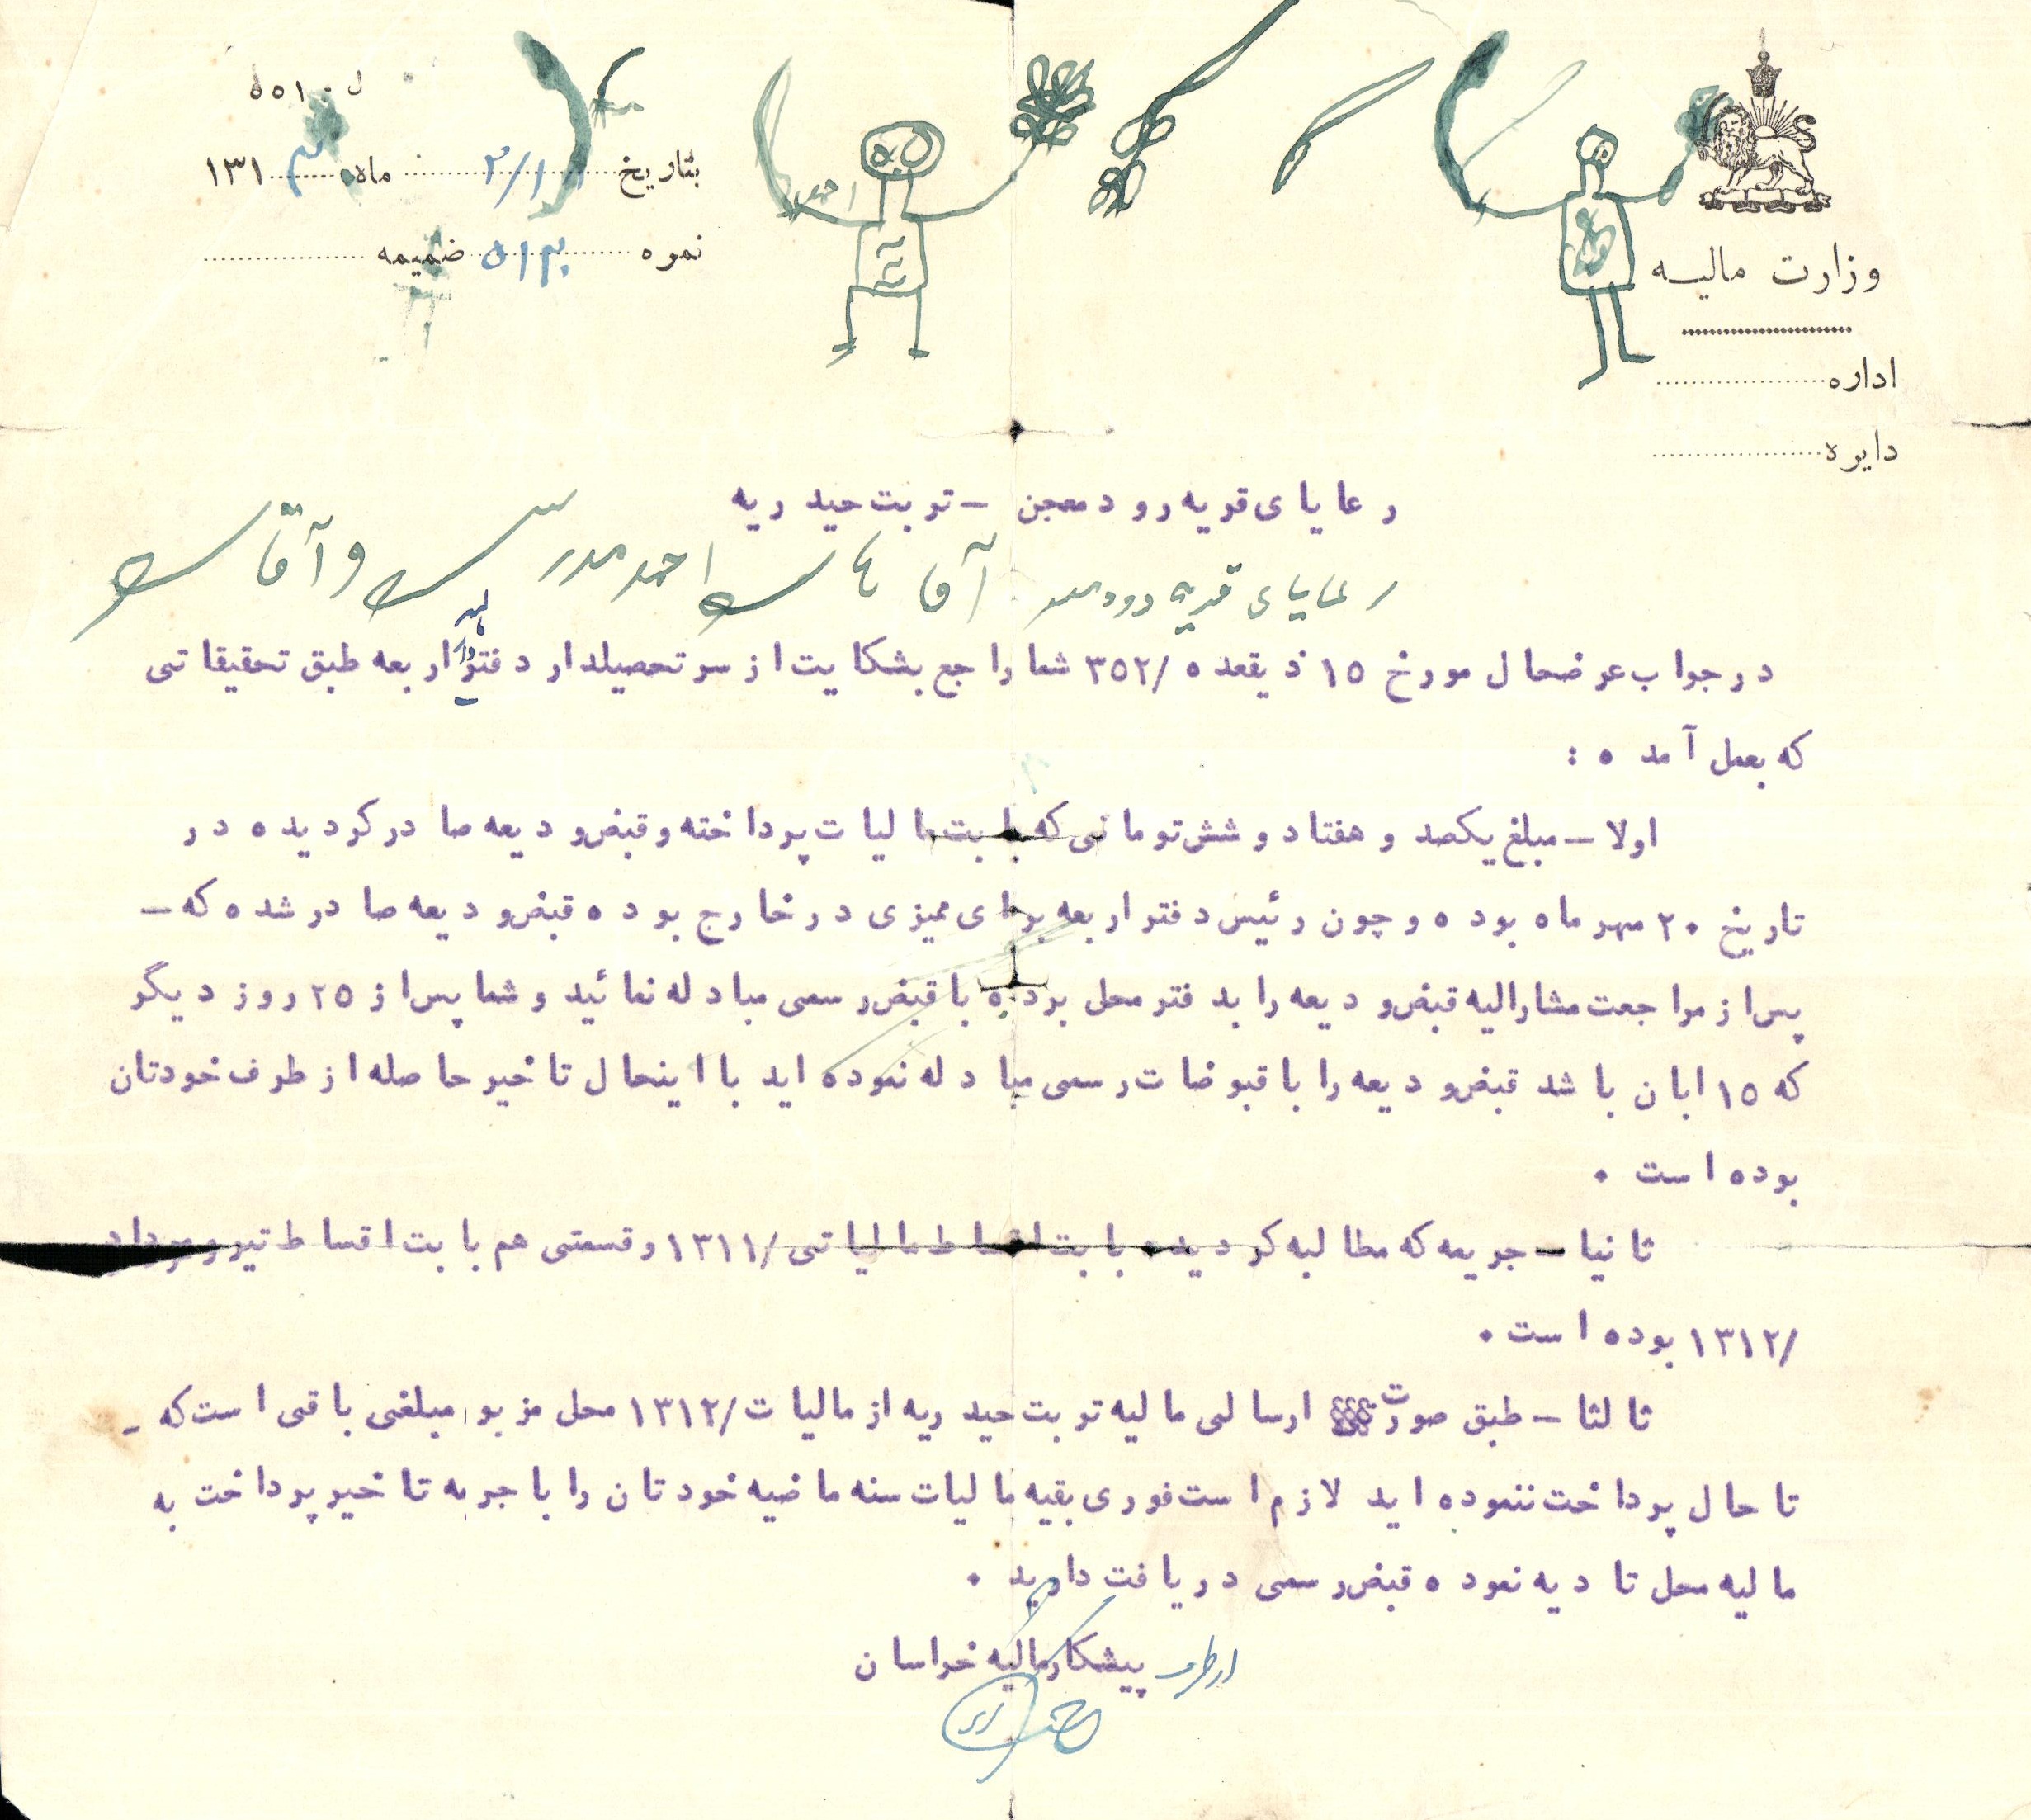 وزارت مالیه
اداره
دایره
ل - ۵۵۱
بتاریخ ۲/۱ ماه ۱۳۱
نمره ۵۱۳ ضمیمه
احمد
رعایای قریه رودمعجن - تربت حیدریه
رعایای قریه آقا احمد مدرس و آقا
در جواب عرضحال مورخ ۱۵ ذیقعده /۳۵۲ شما راجع بشکایت از سر تحصیلدار دفتر اربعه طبق تحقیقاتی
که بعمل آمده :
اولا - مبلغ یکصد و هفتاد و شش تومانی که بابت مالیات پرداخته و قبض ودیعه صادر گردیده در
تاریخ ۲۰ مهر ماه بوده و چون رئیس دفتر اربعه برای ممیزی در خارج بوده قبض ودیعه صادر شده که -
پس از مراجعت مشارالیه قبض ودیعه را بدفتر محل برده با قبض رسمی مبادله نمائید و شما پس از ۲۵ روز دیگر
که ۱۵ ابان باشد قبض ودیعه را با قبوضات رسمی مبادله نموده اید با اینحال تاخیر حاصله از طرف خودتان
بوده است .
ثانیا - جریمه که مطالبه گردیده بابت اقساط مالیاتی /۱۳۱۱ و قسمتی هم بابت اقساط تیر و مرداد
/۱۳۱۲ بوده است .
ثالثا - طبق صورت ارسالی مالیه تربت حیدریه از مالیات /۱۳۱۲ محل مزبور مبلغی باقی است که -
تا حال پرداخت ننموده اید لازم است فوری بقیه مالیات سنه ماضیه خودتان را با جریه تاخیر پرداخت به
مالیه محل تادیه نموده قبض رسمی دریافت دارید .
از طرف پیشکار مالیه خراسان